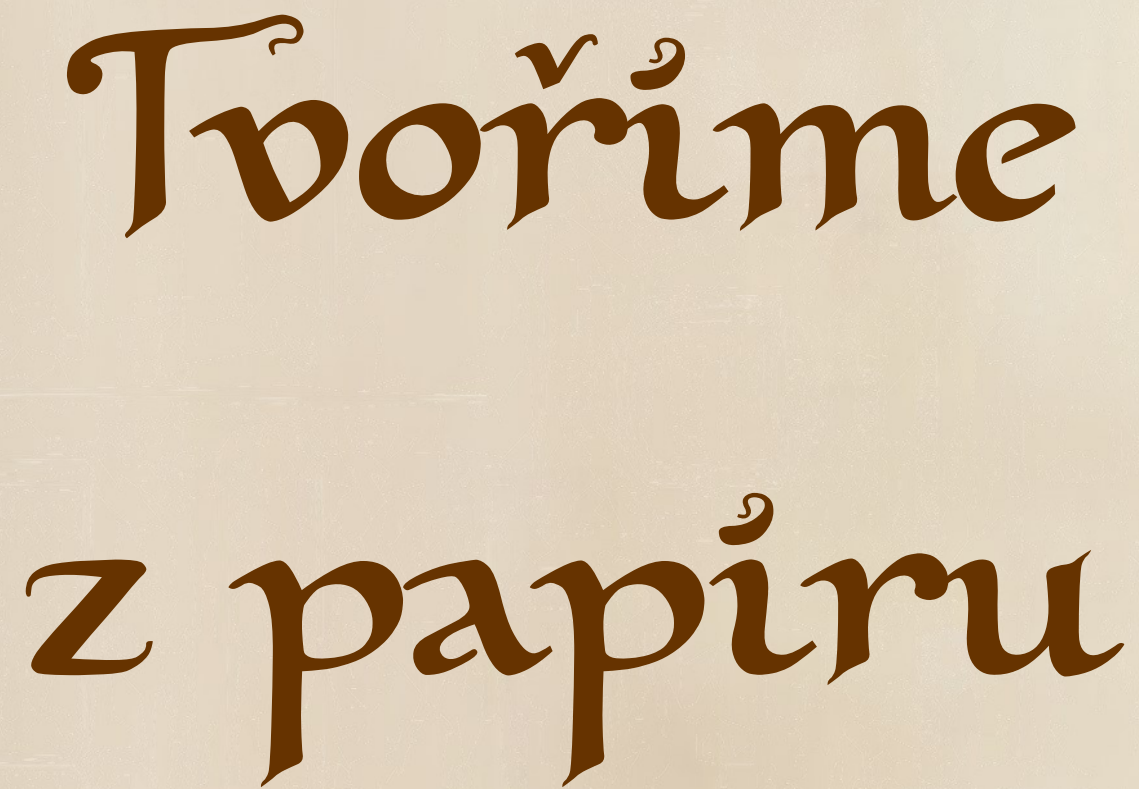 Tvoříme
z papíru